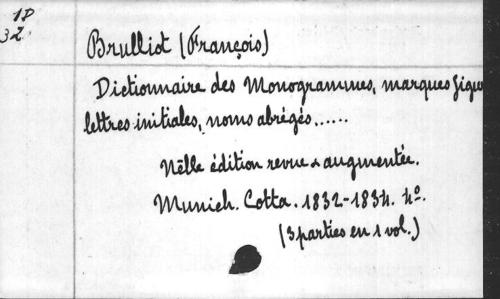 1D
32
Brulliot (François)
Dictionnaire des Monogrammes, marques figu
lettres initiales, noms abrégés......
Nelle édition revue & augmentée.
Munich. Cotta. 1832-1834. 4º.
(3 parties en 1 vol.)